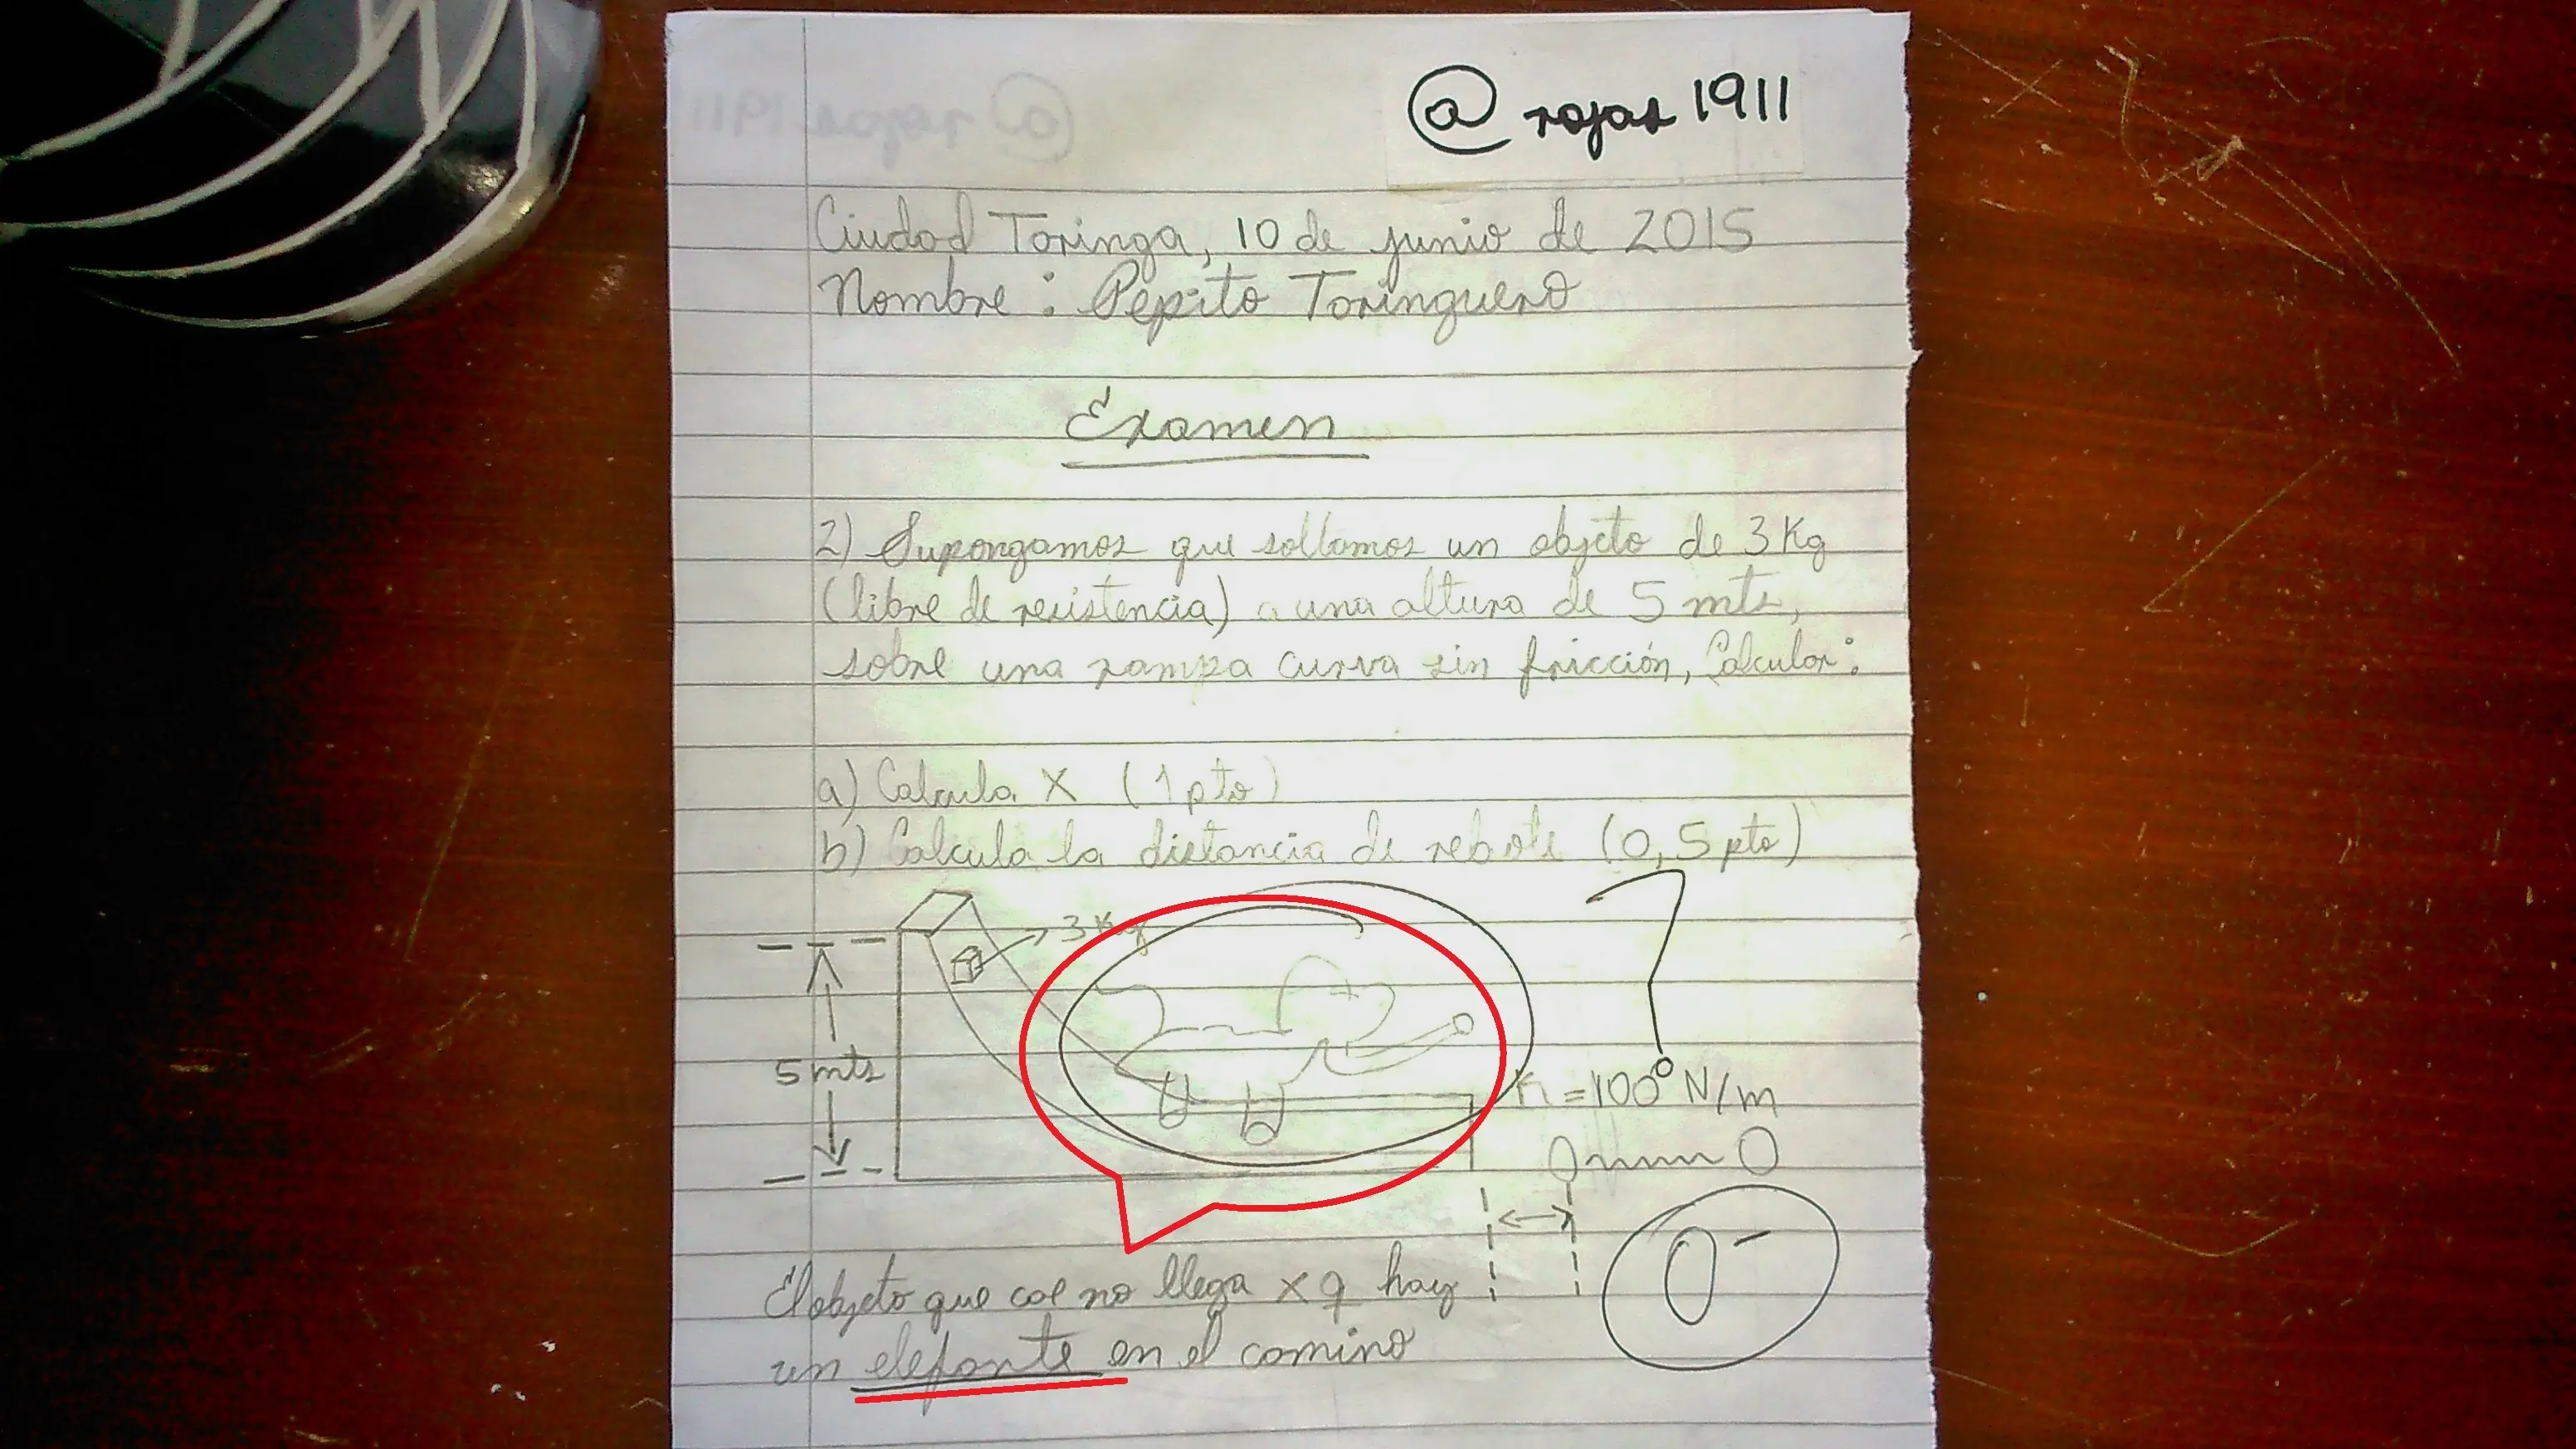 @rojas1911
Ciudad Toringa, 10 de junio de 2015
Nombre: Pepito Toringuero
Examen
2) Supongamos que soltamos un objeto de 3 Kg
(libre de resistencia) a una altura de 5 mts,
sobre una rampa curva sin fricción, Calcular:
a) Calcula X (1 pto)
b) Calcula la distancia de rebote (0,5 pto)
3 Kg
5 mts
K = 100 N/m
?
0-
El objeto que cae no llega x q hay
un elefante en el camino